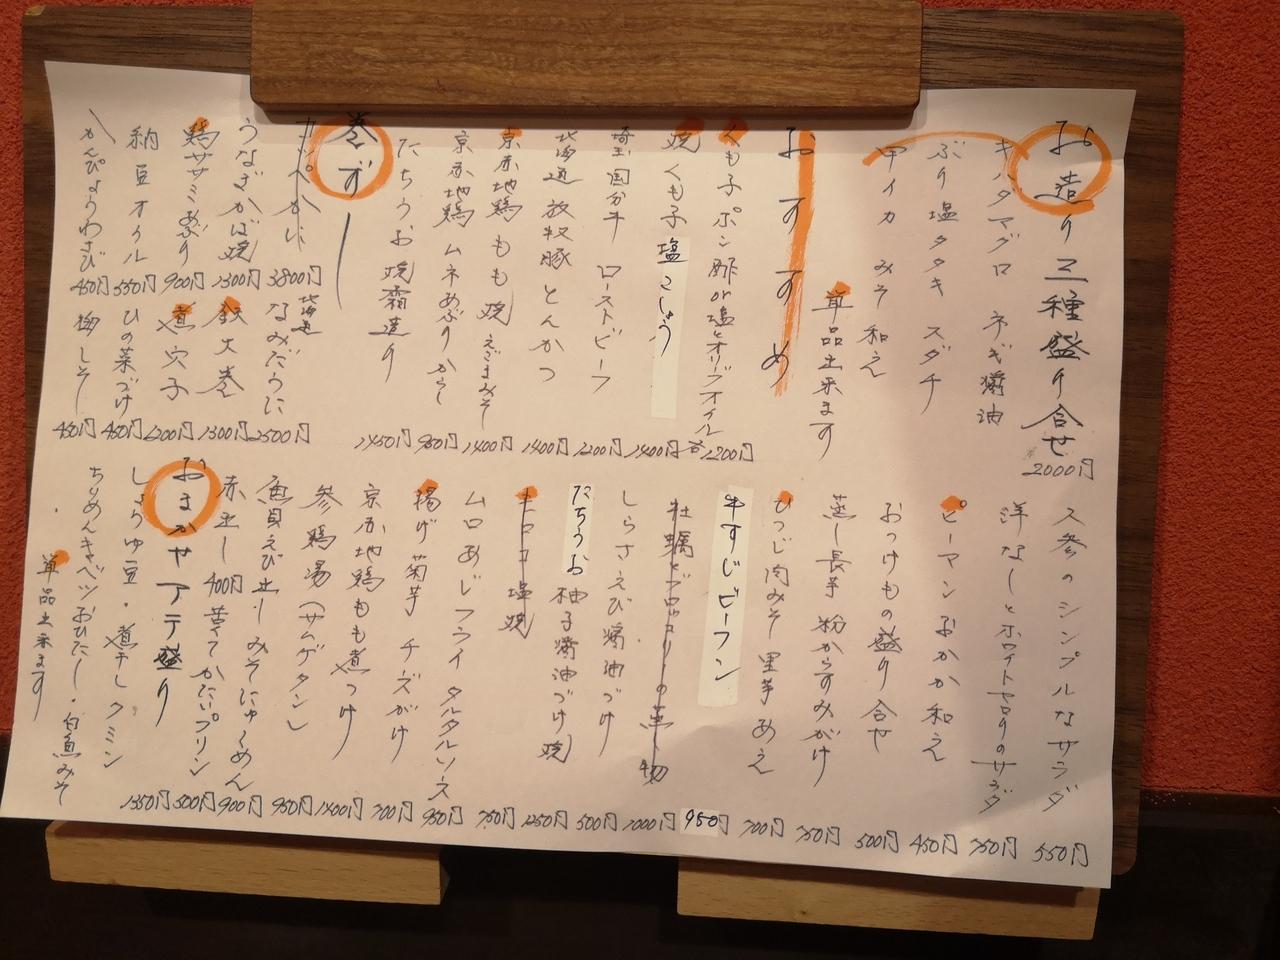 お造り三種盛り合せ 2000円
キハダマグロ ネギ醤油
ぶり塩タタキ スダチ
甲イカ みそ和え
単品出来ます
おすすめ
くも子ポン酢or塩とオリーブオイル 各1200円
焼くも子 塩こしょう 1400円
埼玉国分牛 ローストビーフ 1200円
北海道 放牧豚 とんかつ 1400円
京赤地鶏 もも焼 えごまみそ 1400円
京赤地鶏 ムネあぶり からし 950円
たちうお 焼霜造り 1450円
巻ずし
3800円
うなぎかば焼 1300円
鶏ササミあぶり 900円
納豆オクル 550円
かんぴょうわさび 450円
北海道 なみだうに 2500円
鉄火巻 1300円
煮穴子 1200円
ひの菜づけ 450円
梅しそ 450円
ス参のシンプルなサラダ 550円
洋なしとホワイトセロリのサラダ 750円
ピーマンおかか和え 450円
おつけもの盛り合せ 500円
蒸し長芋 粉からすみがけ 750円
ひつじ肉みそ 里芋あえ 700円
牛すじビーフン 950円
牡蠣とブロッコリーの 1000円
しらさえび醤油づけ 500円
たちうお 柚子醤油づけ焼 1250円
キロロコ塩焼 750円
ムロあじフライ タルタルソース 950円
揚げ菊芋 チーズがけ 700円
京赤地鶏もも煮つけ 1400円
参鶏湯(サムゲタン) 950円
魚貝えび出し みそにゅーめん 900円
赤出し 400円
苦くてかたいプリン 500円
おまかせアテ盛り 1350円
しょうゆ豆・煮干しクミン
ちりめんキャベツおひたし・白魚みそ
単品出来ます